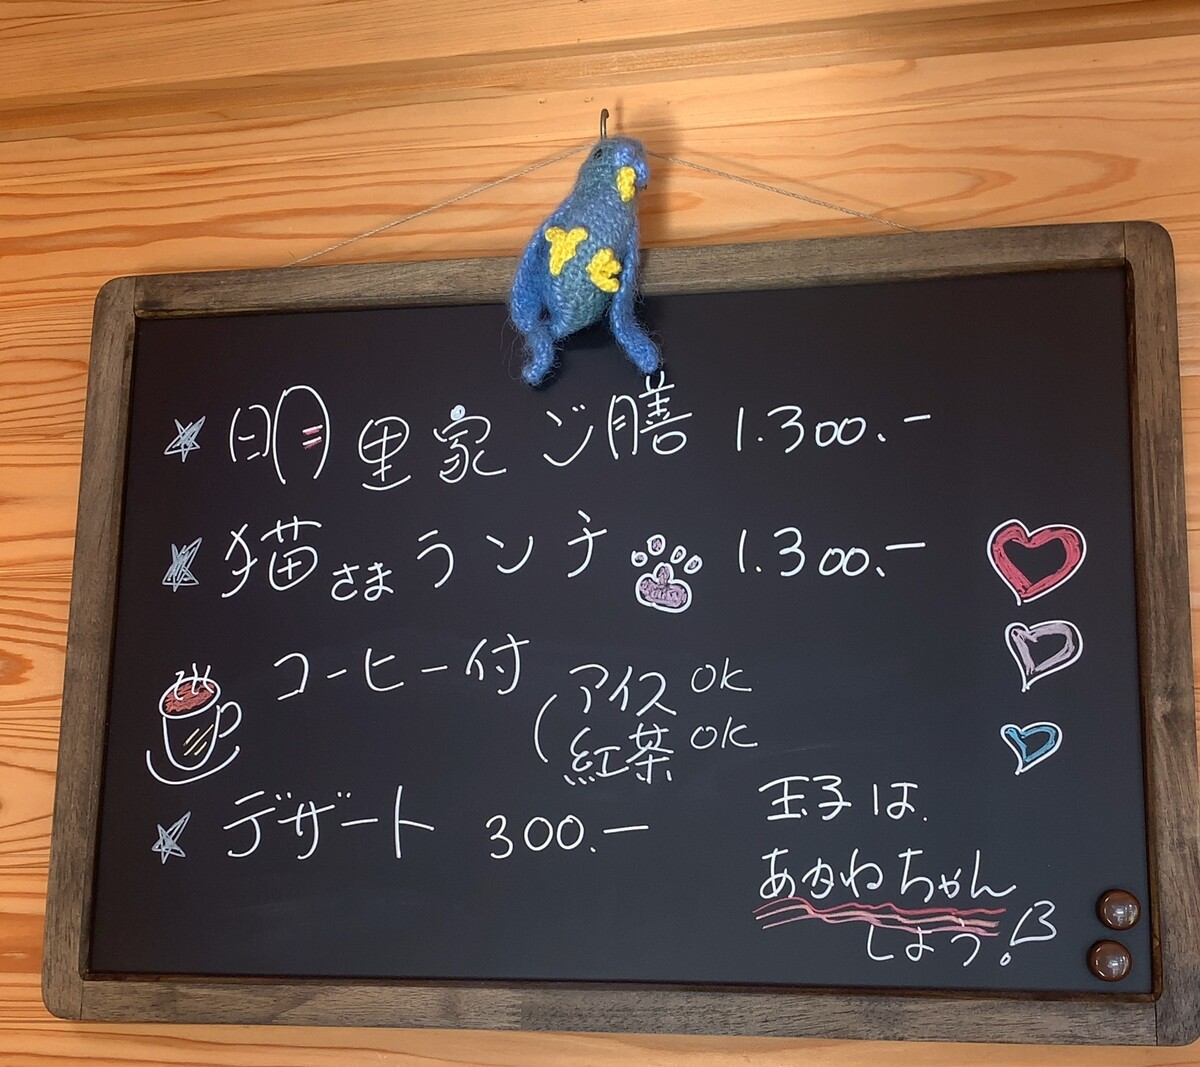 明里家 ご膳 1.300.-
猫さまランチ 1.300.-
コーヒー付
(アイス OK
紅茶 OK
デザート 300.-
玉子は
あかねちゃん
しよう!